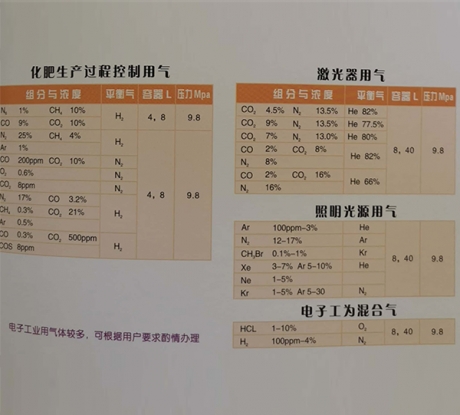 化肥生产过程控制用气
组分与浓度 平衡气 容器 L 压力Mpa
N₂ 1% CH₄ 10%
CO 9% CO₂ 10% H₂ 4, 8 9.8
N₂ 25% CH₄ 4%
Ar 1% H₂
CO 200ppm CO₂ 10% N₂
O₂ 0.6% N₂
CO₂ 8ppm N₂
N₂ 17% CO 3.2%
CH₄ 0.3% CO₂ 21% H₂ 4, 8 9.8
Ar 0.5%
CO 0.3% CO₂ 500ppm
COS 8ppm H₂
电子工业用气体较多，可根据用户要求酌情办理
激光器用气
组分与浓度 平衡气 容器 L 压力Mpa
CO₂ 4.5% N₂ 13.5% He 82%
CO₂ 9% N₂ 13.5% He 77.5%
CO₂ 7% N₂ 13.0% He 80%
CO 2% CO₂ 8%
N₂ 8% He 82% 8, 40 9.8
CO 2% CO₂ 16%
N₂ 16% He 66%
照明光源用气
Ar 100ppm-3% He
N₂ 12-17% Ar
CH₃Br 0.1%-1% Kr
Xe 3-7% Ar 5-10% He 8, 40 9.8
Ne 1-5%
Kr 1-5% Ar 5-30 N₂
电子工为混合气
HCL 1-10% O₂ 8, 40 9.8
H₂ 100ppm-4% N₂